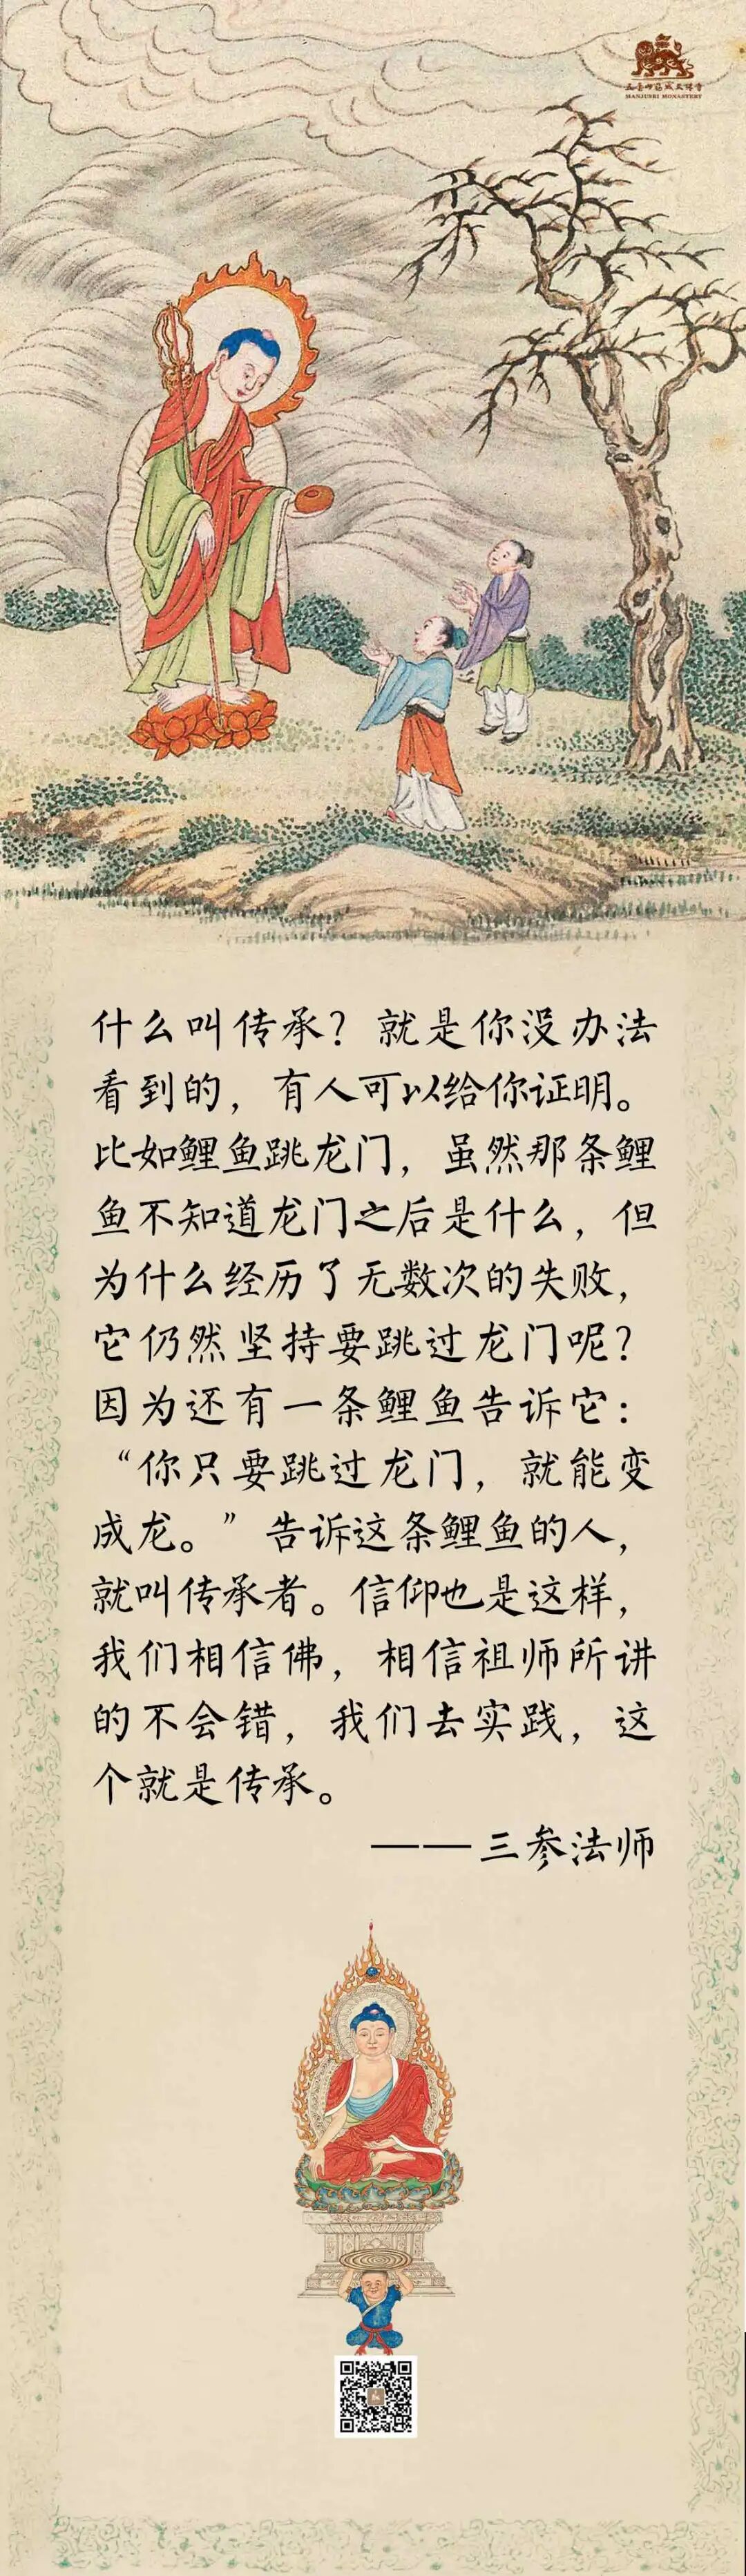 MANJUSRI MONASTERY
什么叫传承？就是你没办法
看到的，有人可以给你证明。
比如鲤鱼跳龙门，虽然那条鲤
鱼不知道龙门之后是什么，但
为什么经历了无数次的失败，
它仍然坚持要跳过龙门呢？
因为还有一条鲤鱼告诉它：
“你只要跳过龙门，就能变
成龙。”告诉这条鲤鱼的人，
就叫传承者。信仰也是这样，
我们相信佛，相信祖师所讲
的不会错，我们去实践，这
个就是传承。
——三参法师